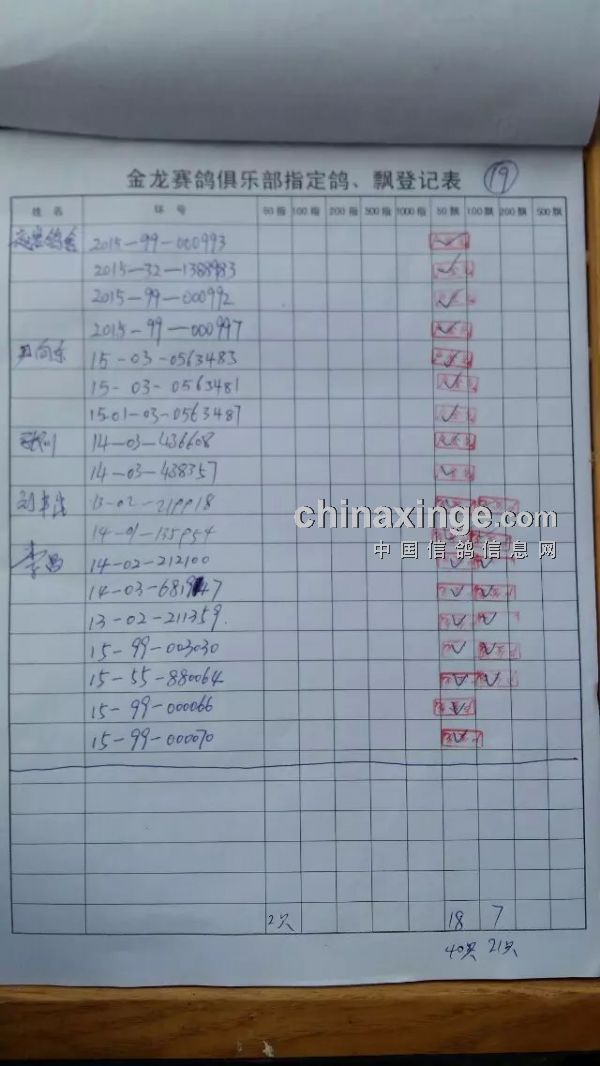 金龙赛鸽俱乐部指定鸽、飘登记表 19
姓名 环号 50指 100指 200指 500指 1000指 50飘 100飘 200飘 500飘
2015-99-000993
2015-32-1388983
2015-99-000992
2015-99-000997
15-03-0563483
15-03-0563481
15-01-03-0563487
14-03-436608
14-03-438357
13-02-219918
chinaxinge.com
14-01-135954
中国信鸽信息网
李昌 14-02-212100
14-03-681947
13-02-211359.
15-99-003030
15-55-880064
15-99-000066
15-99-000070
2只 18 7
40只 21只